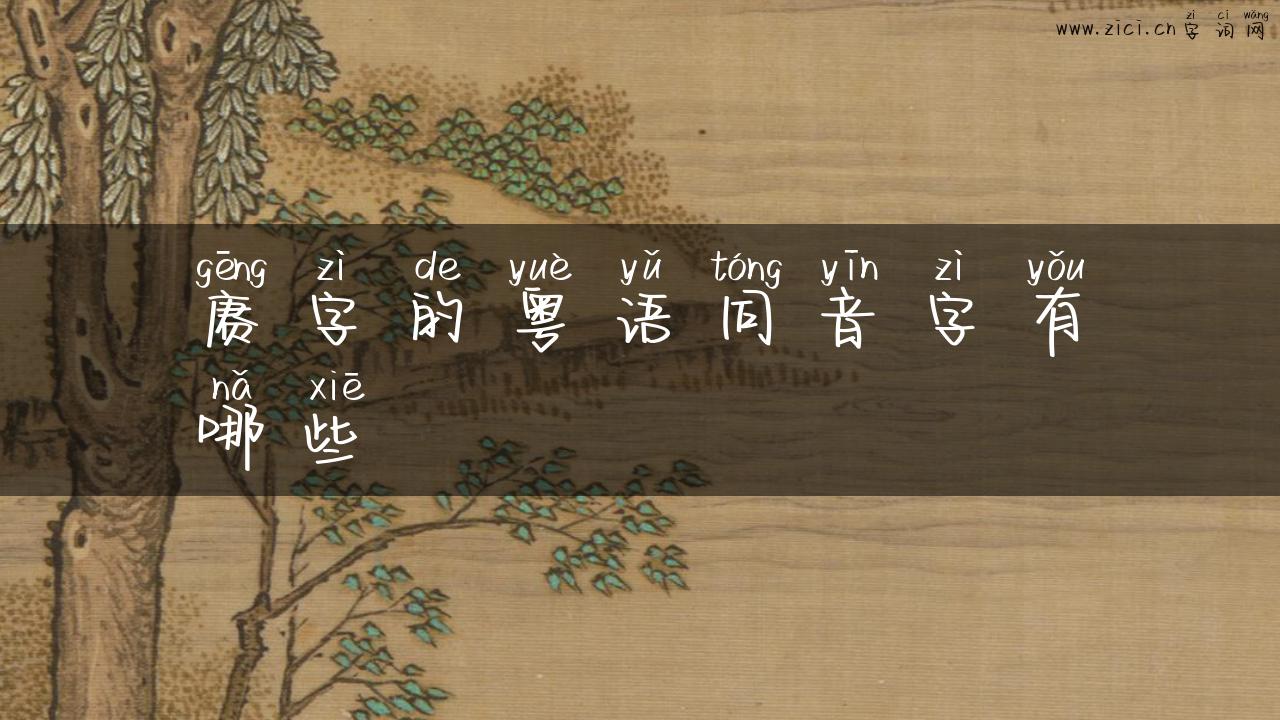 zì cí wǎng
www.zici.cn 字词网
gēng zì de yuè yǔ tóng yīn zì yǒu
赓字的粤语同音字有
nǎ xiē
哪些